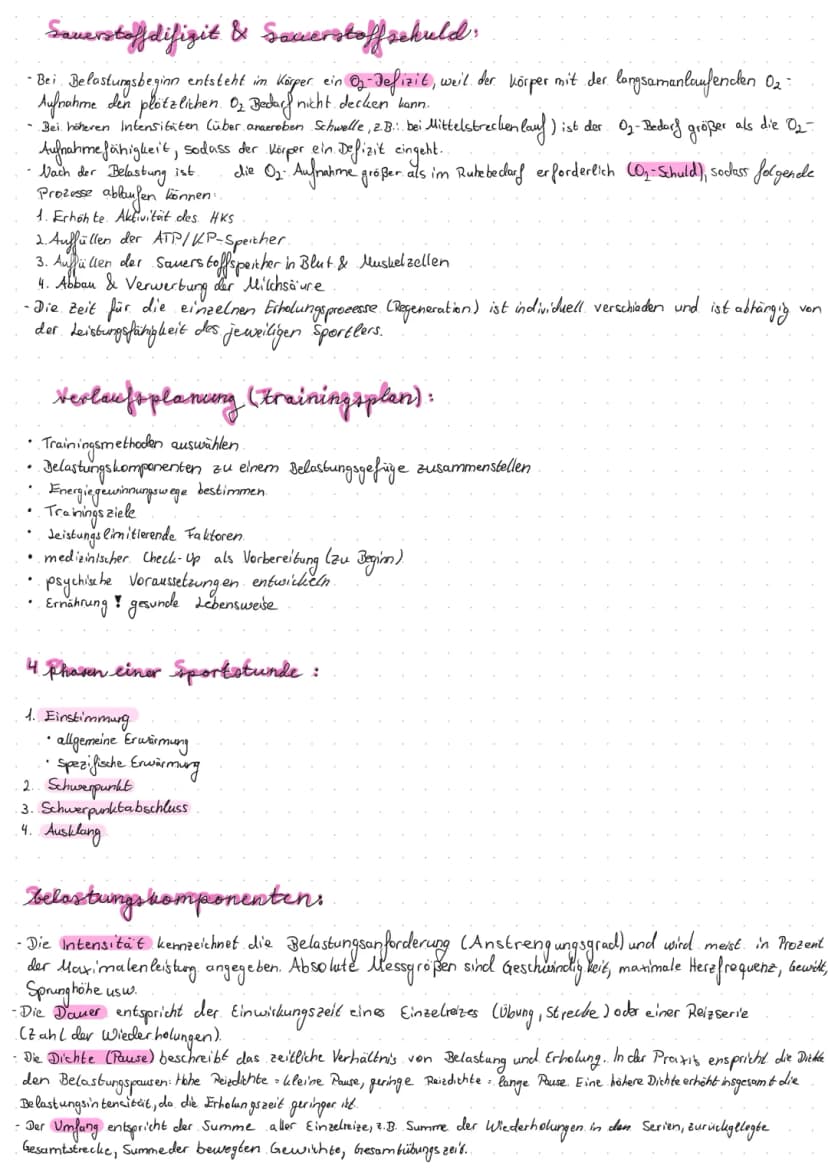 Sauerstoffdifizit & Sauerstoffschuld:
- Bei Belastungsbeginn entsteht im Körper ein O₂-Defizit, weil der Körper mit der langsamanlaufenden O₂-
Aufnahme den plötzlichen O₂ Bedarf nicht decken kann.
- Bei höheren Intensitäten (über anaeroben Schwelle, z.B.: bei Mittelstreckenlauf) ist der O₂-Bedarf größer als die O₂-
Aufnahmefähigkeit, sodass der Körper ein Defizit eingeht.
- Nach der Belastung ist die O₂-Aufnahme größer als im Ruhebedarf erforderlich (O₂-Schuld), sodass folgende
Prozesse ablaufen können:
1. Erhöhte Aktivität des HKS
2. Auffüllen der ATP/KP-Speicher
3. Auffüllen der Sauerstoffspeicher in Blut & Muskelzellen
4. Abbau & Verwertung der Milchsäure
- Die Zeit für die einzelnen Erholungsprozesse (Regeneration) ist individuell verschieden und ist abhängig von
der Leistungsfähigkeit des jeweiligen Sportlers.
Verlaufsplanung (Trainingsplan):
• Trainingsmethoden auswählen
• Belastungskomponenten zu einem Belastungsgefüge zusammenstellen
• Energiegewinnungswege bestimmen
• Trainingsziele
• Leistungslimitierende Faktoren
• medizinischer Check-Up als Vorbereitung (zu Beginn)
• psychische Voraussetzungen entwickeln
• Ernährung ! gesunde Lebensweise
4 Phasen einer Sportstunde :
1. Einstimmung
• allgemeine Erwärmung
• spezifische Erwärmung
2. Schwerpunkt
3. Schwerpunktabschluss
4. Ausklang
Belastungskomponenten:
- Die Intensität kennzeichnet die Belastungsanforderung (Anstrengungsgrad) und wird meist in Prozent
der Maximalenleistung angegeben. Absolute Messgrößen sind Geschwindigkeit, maximale Herzfrequenz, Gewicht,
Sprunghöhe usw.
- Die Dauer entspricht der Einwirkungszeit eines Einzelreizes (Übung, Strecke) oder einer Reizserie
(Zahl der Wiederholungen).
- Die Dichte (Pause) beschreibt das zeitliche Verhältnis von Belastung und Erholung. In der Praxis enspricht die Dichte
den Belastungspausen: Hohe Reizdichte = kleine Pause, geringe Reizdichte = lange Pause. Eine höhere Dichte erhöht insgesamt die
Belastungsintensität, da die Erholungszeit geringer ist.
- Der Umfang entspricht der Summe aller Einzelreize, z.B. Summe der Wiederholungen in den Serien, zurückgelegte
Gesamtstrecke, Summe der bewegten Gewichte, Gesamtübungszeit.